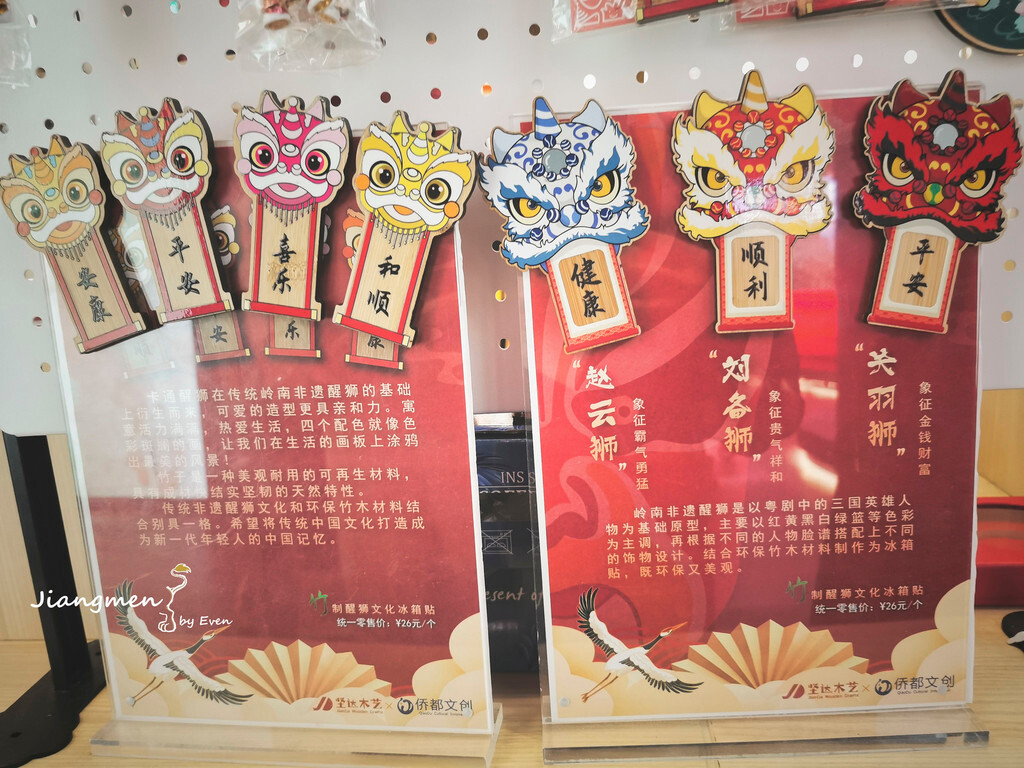 安康
平安
喜乐
和顺
安
乐
康
卡通醒狮在传统岭南非遗醒狮的基础
上衍生而来，可爱的造型更具亲和力。寓
意活力满满，热爱生活，四个配色就像色
彩斑斓的，让我们在生活的画板上涂鸦
出最美的风景！
竹子是一种美观耐用的可再生材料，
具有结实坚韧的天然特性。
传统非遗醒狮文化和环保竹木材料结
合别具一格。希望将传统中国文化打造成
为新一代年轻人的中国记忆。
竹制醒狮文化冰箱贴
统一零售价：¥26元/个
坚达木艺×侨都文创
Jiangmen
by Even
INS S
esent of
健康
顺利
平安
“赵云狮”
象征霸气勇猛
“刘备狮”
象征贵气祥和
“关羽狮”
象征金钱财富
岭南非遗醒狮是以粤剧中的三国英雄人
物为基础原型，主要以红黄黑白绿蓝等色彩
为主调，再根据不同的人物脸谱搭配上不同
的饰物设计。结合环保竹木材料制作为冰箱
贴，既环保又美观。
竹制醒狮文化冰箱贴
统一零售价：¥26元/个
坚达木艺×侨都文创